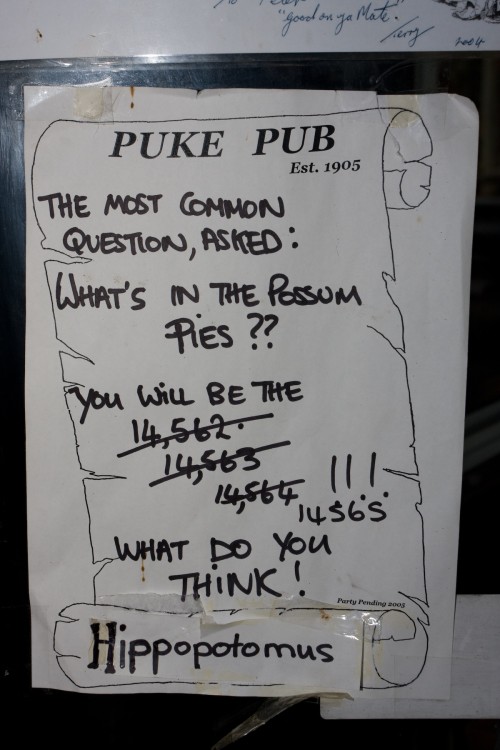 "good on ya Mate."
Terry
2004
PUKE PUB
Est. 1905
THE MOST COMMON
QUESTION, ASKED:
WHAT'S IN THE POSSUM
PIES ??
YOU WILL BE THE
14,562.
14,563
14,564 !!!
14565
WHAT DO YOU
THINK!
Party Pending 2005
Hippopotomus